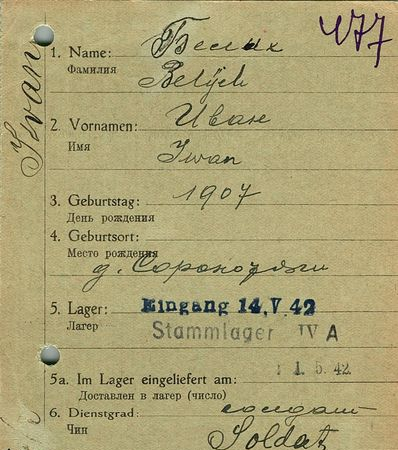 477
Iwan
1. Name: Белых
Фамилия
Belych
2. Vornamen: Иван
Имя
Iwan
3. Geburtstag: 1907
День рождения
4. Geburtsort:
Место рождения
д.
5. Lager: Eingang 14. V. 42
Лагер
Stammlager IV A
1. 5. 42
5a. Im Lager eingeliefert am:
Доставлен в лагер (число)
6. Dienstgrad: солдат
Чин
Soldat